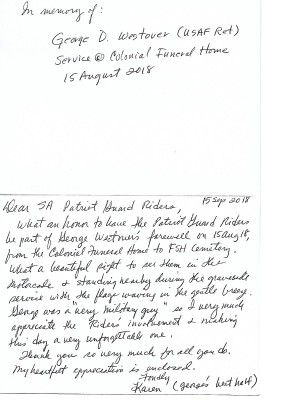 In memory of:
George D. Westover (USAF Ret)
Service @ Colonial Funeral Home
15 August 2018
15 Sep 2018
Dear SA Patriot Guard Riders,
What an honor to have the Patriot Guard Riders
be part of George Westover's farewell on 15 Aug 18,
from the Colonial Funeral Home to FSH Cemetery.
What a beautiful sight to see them in the
motorcade & standing nearby during the graveside
service with the flags waving in the gentle breeze.
George was a "very military guy" so I very much
appreciate the Riders involvement & making
this day a very unforgettable one.
Thank you so very much for all you do.
My heartfelt appreciation is enclosed.
Fondly
Karen (George's best half)